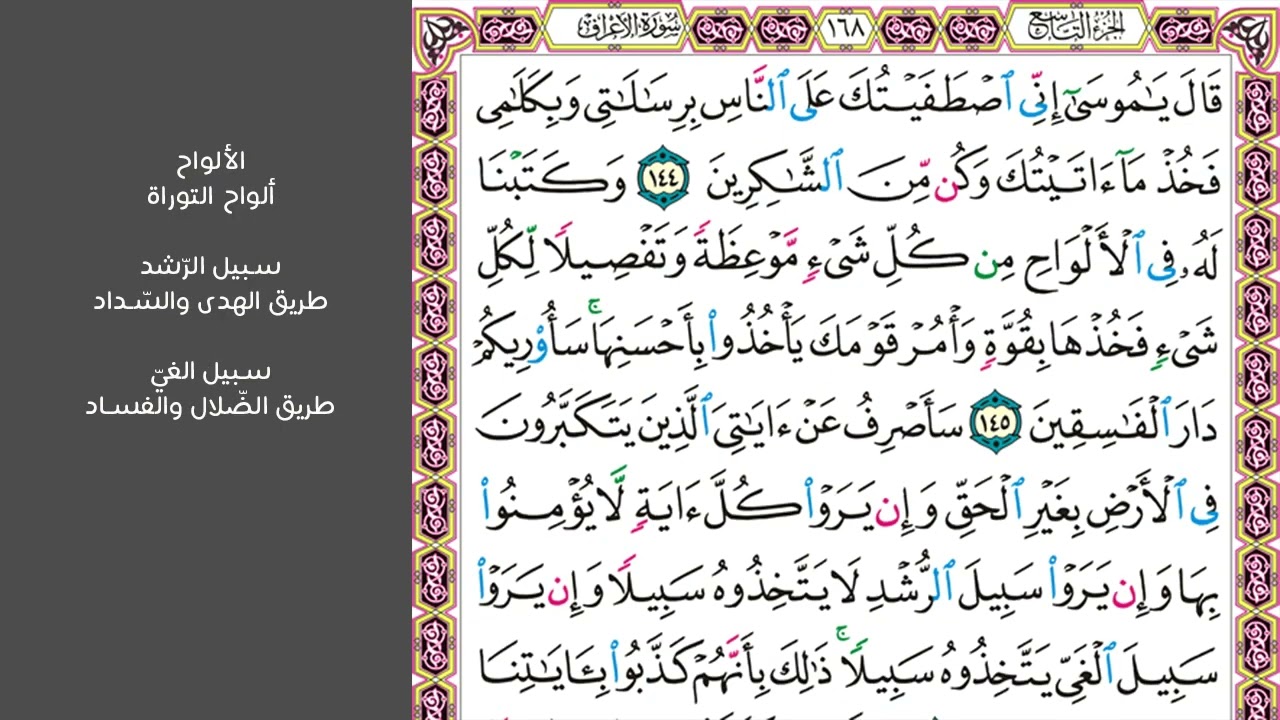 الجزء التاسع
١٦٨
سورة الأعراف
قَالَ يَٰمُوسَىٰٓ إِنِّي ٱصۡطَفَيۡتُكَ عَلَى ٱلنَّاسِ بِرِسَٰلَٰتِي وَبِكَلَٰمِي
فَخُذۡ مَآ ءَاتَيۡتُكَ وَكُن مِّنَ ٱلشَّٰكِرِينَ ١٤٤ وَكَتَبۡنَا
لَهُۥ فِي ٱلۡأَلۡوَاحِ مِن كُلِّ شَيۡءٖ مَّوۡعِظَةٗ وَتَفۡصِيلٗا لِّكُلِّ
شَيۡءٖ فَخُذۡهَا بِقُوَّةٖ وَأۡمُرۡ قَوۡمَكَ يَأۡخُذُواْ بِأَحۡسَنِهَاۚ سَأُوْرِيكُمۡ
دَارَ ٱلۡفَٰسِقِينَ ١٤٥ سَأَصۡرِفُ عَنۡ ءَايَٰتِيَ ٱلَّذِينَ يَتَكَبَّرُونَ
فِي ٱلۡأَرۡضِ بِغَيۡرِ ٱلۡحَقِّ وَإِن يَرَوۡاْ كُلَّ ءَايَةٖ لَّا يُؤۡمِنُواْ
بِهَا وَإِن يَرَوۡاْ سَبِيلَ ٱلرُّشۡدِ لَا يَتَّخِذُوهُ سَبِيلٗا وَإِن يَرَوۡاْ
سَبِيلَ ٱلۡغَيِّ يَتَّخِذُوهُ سَبِيلٗاۚ ذَٰلِكَ بِأَنَّهُمۡ كَذَّبُواْ بِـَٔايَٰتِنَا
الألواح
ألواح التوراة
سبيل الرّشد
طريق الهدى والسّداد
سبيل الغيّ
طريق الضّلال والفساد